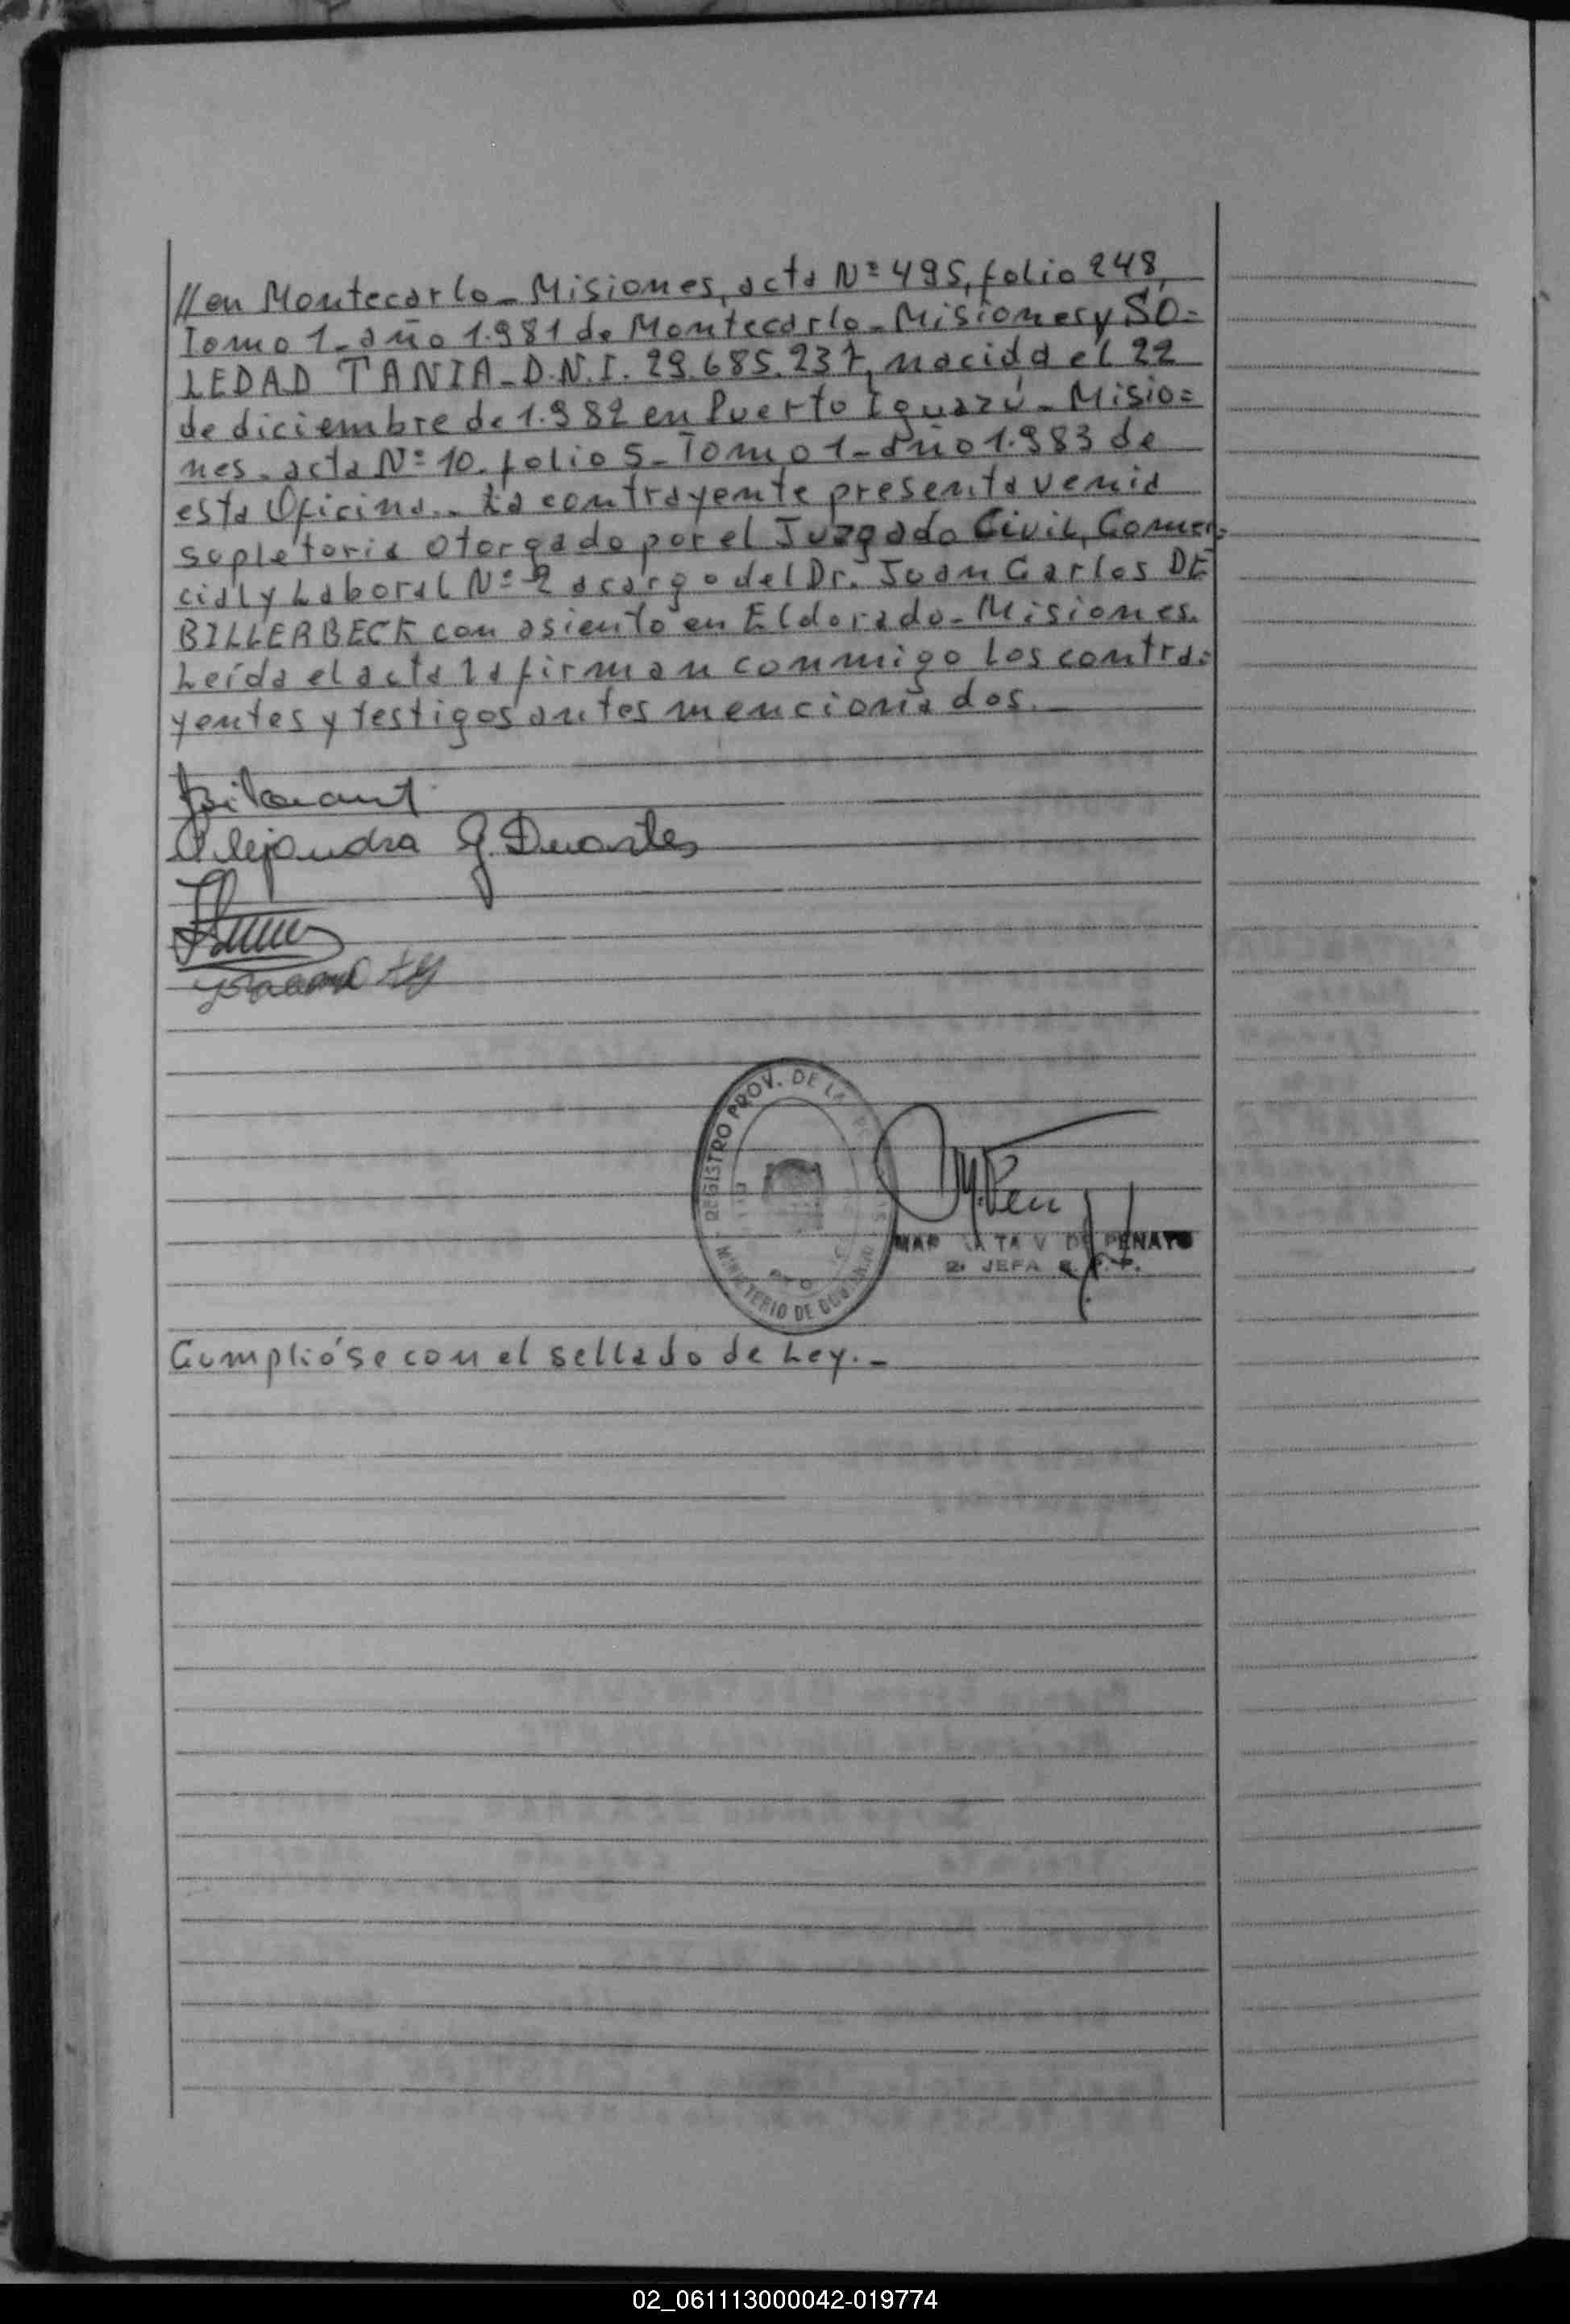 //en Montecarlo_Misiones, acta Nº 495, folio 248,
Tomo 1_año 1.981 de Montecarlo_Misiones y SO=
LEDAD TANIA_D.N.I. 29.685.237, nacida el 22
de diciembre de 1.982 en Puerto Iguazú_Misio=
nes_acta Nº 10_folio 5_Tomo 1_año 1.983 de
esta Oficina._ La contrayente presenta venia
supletoria otorgado por el Juzgado Civil, Comer=
cial y Laboral Nº 2 a cargo del Dr. Juan Carlos DE
BILLERBECK con asiento en Eldorado_Misiones.
Leída el acta la firman conmigo los contra=
yentes y testigos antes mencionados._
Alejandra G. Duarte
REGISTRO PROV. DE LA
MINISTERIO DE GOBIERNO
V. DE PENAYO
JEFA
Cumplióse con el sellado de Ley._
02_061113000042-019774